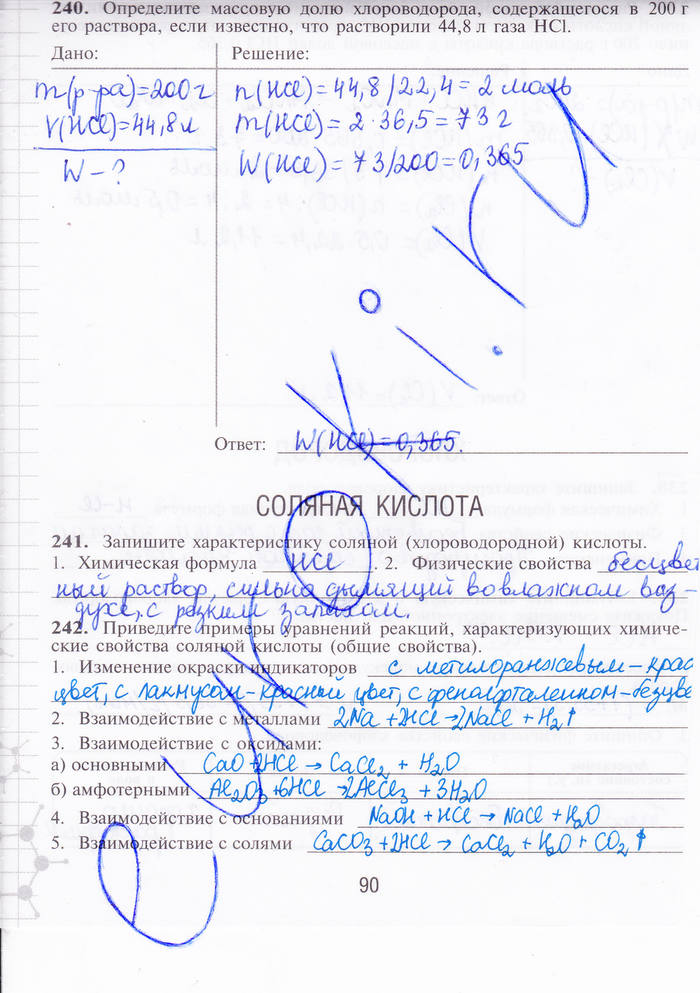 240. Определите массовую долю хлороводорода, содержащегося в 200 г
его раствора, если известно, что растворили 44,8 л газа HCl.
Дано: Решение:
m(р-ра)=200г n(HCl)=44,8/22,4=2 моль
V(HCl)=44,8л m(HCl)=2·36,5=73г
W-? W(HCl)=73/200=0,365
Ответ: W(HCl)=0,365.
СОЛЯНАЯ КИСЛОТА
241. Запишите характеристику соляной (хлороводородной) кислоты.
1. Химическая формула HCl. 2. Физические свойства бесцвет
ный раствор, сильно дымящий во влажном воз-
духе, с резким запахом.
242. Приведите примеры уравнений реакций, характеризующих химиче-
ские свойства соляной кислоты (общие свойства).
1. Изменение окраски индикаторов с метилоранжевым-крас
цвет, с лакмусом-красный цвет, с фенолфталеином-безцве
2. Взаимодействие с металлами 2Na+2HCl→2NaCl+H₂↑
3. Взаимодействие с оксидами:
а) основными CaO+2HCl→CaCl₂+H₂O
б) амфотерными Al₂O₃+6HCl→2AlCl₃+3H₂O
4. Взаимодействие с основаниями NaOH+HCl→NaCl+H₂O
5. Взаимодействие с солями CaCO₃+2HCl→CaCl₂+H₂O+CO₂↑
90